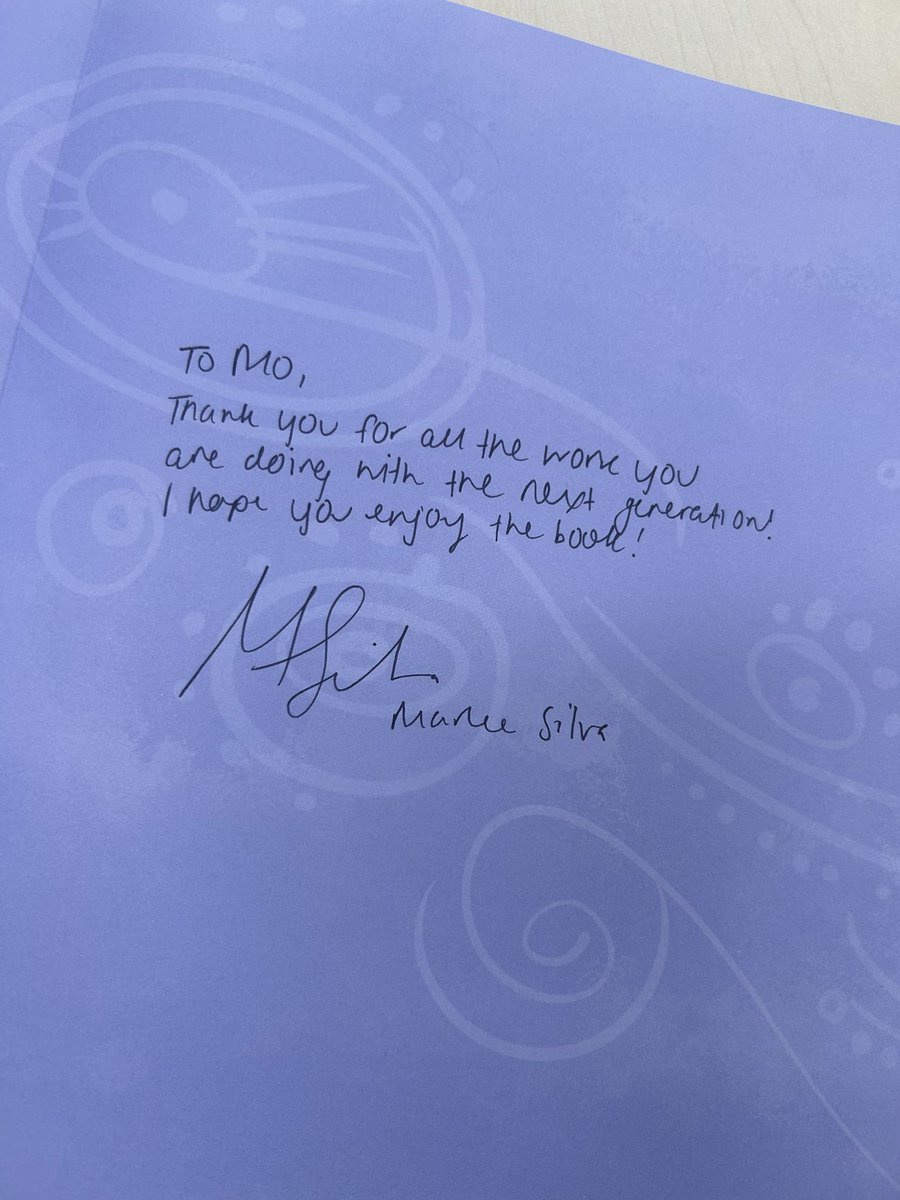 To Mo,
Thank you for all the work you
are doing with the next generation!
I hope you enjoy the book!
MSil
Marlee Silva